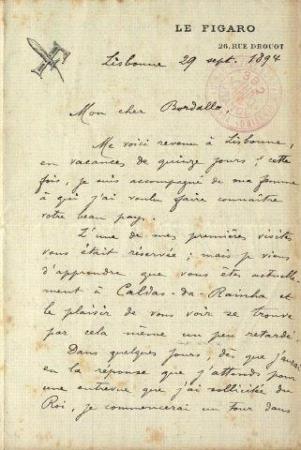 LE FIGARO
26, RUE DROUOT
Lisbonne 29 sept. 1894
Mon cher Bordallo,
Me voici revenu à Lisbonne,
en vacances de quinze jours ; cette
fois, je suis accompagné de ma femme
à qui j'ai voulu faire connaître
votre beau pays.
L'une de mes premières visites
vous était réservée ; mais je viens
d'apprendre que vous êtes actuelle-
ment à Caldas-da-Rainha et
le plaisir de vous voir se trouve
par cela même un peu retardé.
Dans quelques jours, dès que j'aurai
eu la réponse que j'attends pour
une entrevue que j'ai sollicitée du
Roi, je commencerai un tour dans